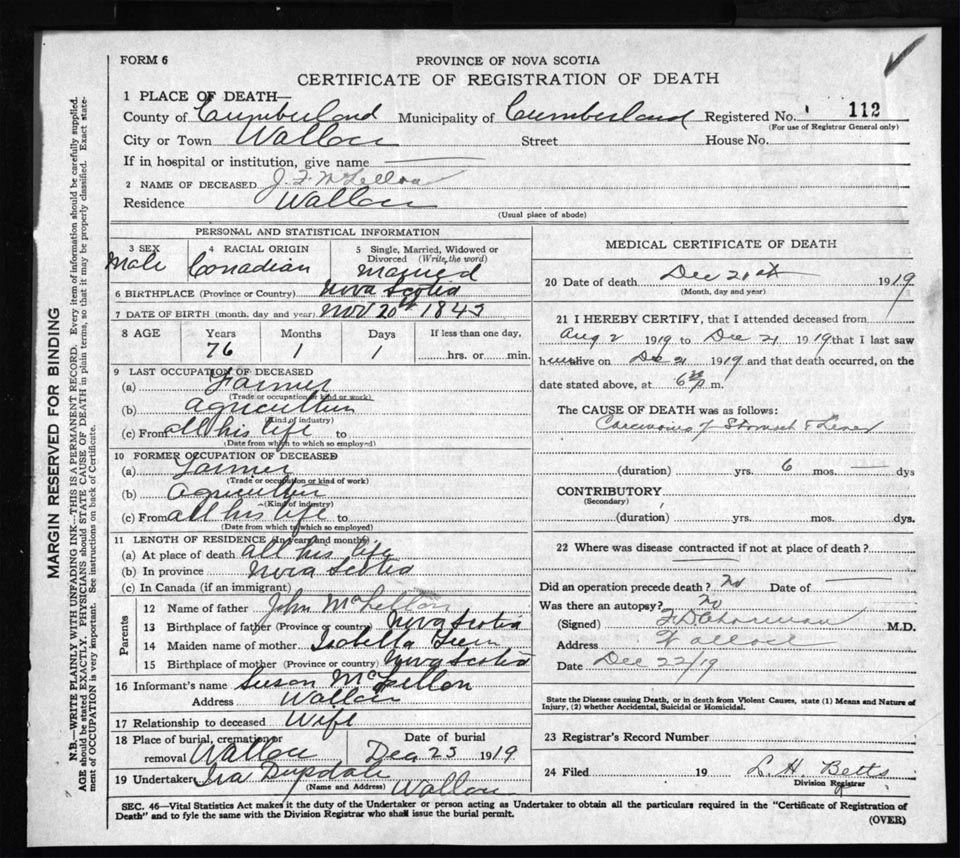 FORM 6
PROVINCE OF NOVA SCOTIA
CERTIFICATE OF REGISTRATION OF DEATH
1 PLACE OF DEATH—
County of Cumberland Municipality of Cumberland Registered No. 112
(For use of Registrar General only)
City or Town Wallace Street House No.
If in hospital or institution, give name
2 NAME OF DECEASED J. F. McLellan
Residence Wallace
(Usual place of abode)
PERSONAL AND STATISTICAL INFORMATION
3 SEX Male
4 RACIAL ORIGIN Canadian
5 Single, Married, Widowed or Divorced (Write, the word) Married
6 BIRTHPLACE (Province or Country) Nova Scotia
7 DATE OF BIRTH (month, day and year) Nov 20th 1843
8 AGE Years Months Days If less than one day,
76 1 1 hrs. or min.
9 LAST OCCUPATION OF DECEASED
(a) Farmer
(Trade or occupation or kind or work)
(b) Agriculture
(Kind of industry)
(c) From all his life to
(Date from which to which so employed)
10 FORMER OCCUPATION OF DECEASED
(a) Farmer
(Trade or occupation or kind of work)
(b) Agriculture
(Kind of industry)
(c) From all his life to
(Date from which to which so employed)
11 LENGTH OF RESIDENCE (in years and months)
(a) At place of death all his life
(b) In province Nova Scotia
(c) In Canada (if an immigrant)
Parents
12 Name of father John McLellan
13 Birthplace of father (Province or country) Nova Scotia
14 Maiden name of mother Isabella
15 Birthplace of mother (Province or country) Nova Scotia
16 Informant's name Susan McLellan
Address Wallace
17 Relationship to deceased Wife
18 Place of burial, cremation or removal Wallace
Date of burial Dec 23 1919
19 Undertaker Ira
(Name and Address) Wallace
MEDICAL CERTIFICATE OF DEATH
20 Date of death Dec 21st 1919
(Month, day and year)
21 I HEREBY CERTIFY, that I attended deceased from
Aug 2 1919 to Dec 21 1919 that I last saw
h alive on Dec 21 1919 and that death occurred, on the
date stated above, at 6 m.
The CAUSE OF DEATH was as follows:
Carcinoma of Stomach & Liver
(duration) yrs. 6 mos. dys
CONTRIBUTORY
(Secondary)
(duration) yrs. mos. dys.
22 Where was disease contracted if not at place of death?
Did an operation precede death? No Date of
Was there an autopsy? No
(Signed) M.D.
Address Wallace
Date Dec 22/19
State the Disease causing Death, or in death from Violent Causes, state (1) Means and Nature of
Injury, (2) whether Accidental, Suicidal or Homicidal.
23 Registrar's Record Number
24 Filed 19 L. H. Betts
Division Registrar
SEC. 46—Vital Statistics Act makes it the duty of the Undertaker or person acting as Undertaker to obtain all the particulars required in the "Certificate of Registration of
Death" and to fyle the same with the Division Registrar who shall issue the burial permit.
(OVER)
MARGIN RESERVED FOR BINDING
N.B.—WRITE PLAINLY WITH UNFADING INK—THIS IS A PERMANENT RECORD. Every item of information should be carefully supplied.
AGE should be stated EXACTLY. PHYSICIANS should STATE CAUSE OF DEATH in plain terms, so that it may be properly classified. Exact state-
ment of OCCUPATION is very important. See instructions on back of Certificate.